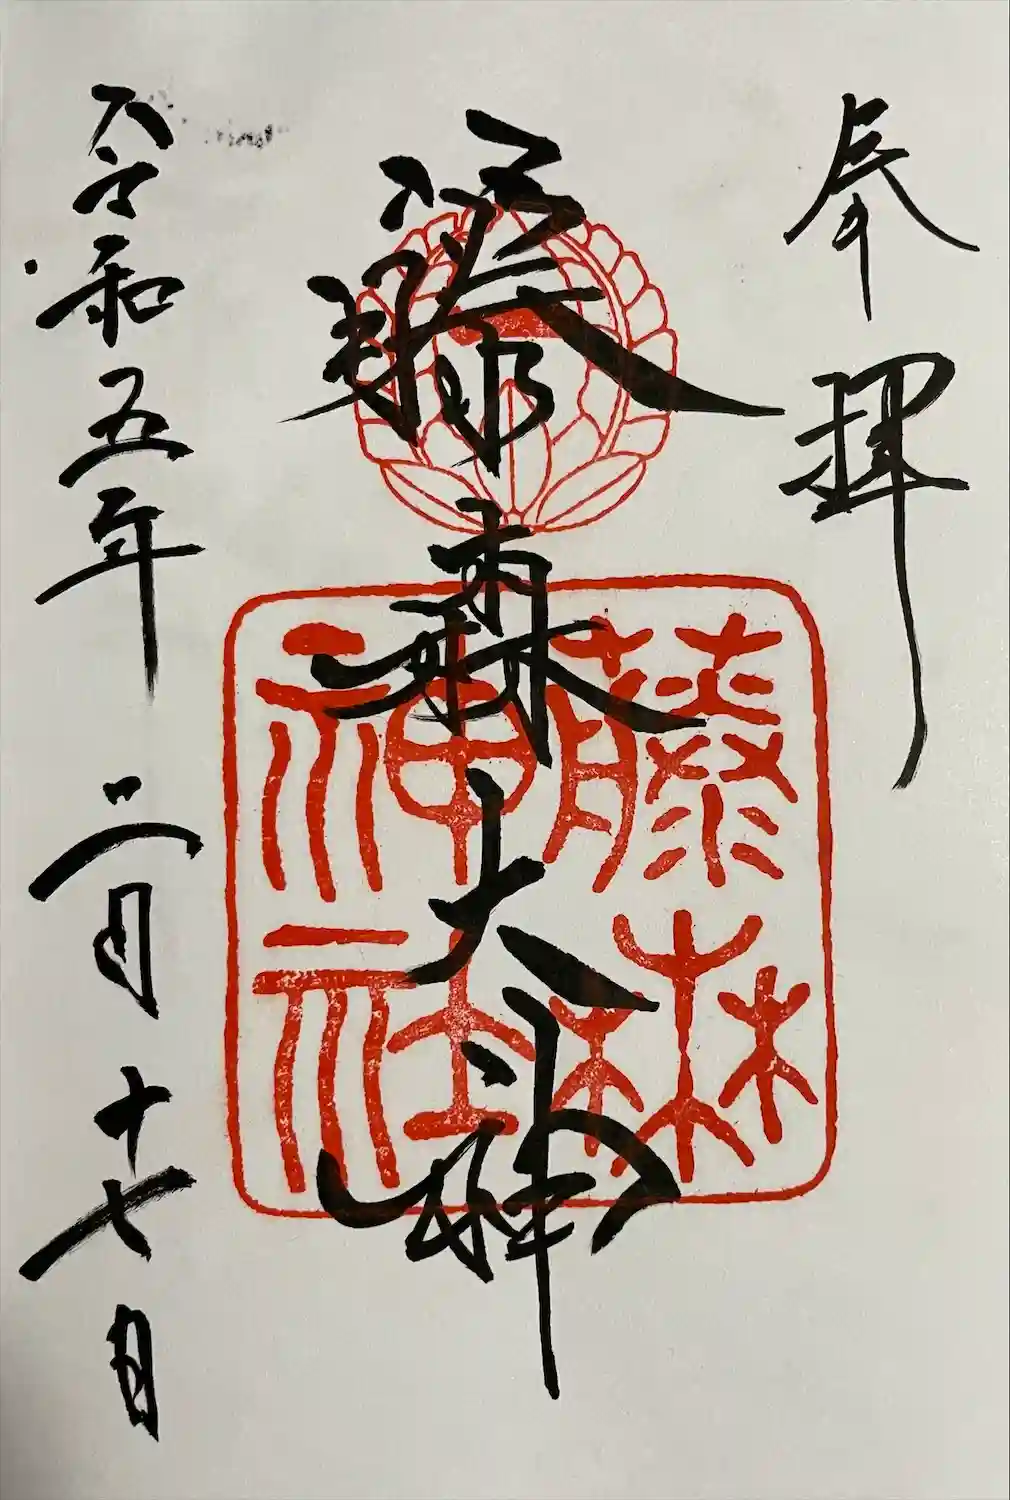 奉拝
藤森大神
令和五年二月十七日
藤森
神社